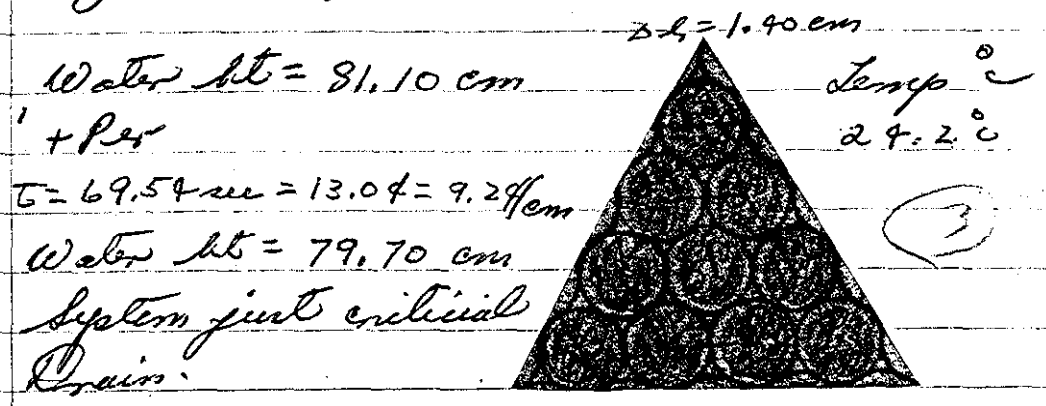 Δh = 1.40 cm
Water ht = 81.10 cm
Temp °c
+ Per
24.2 °c
τ = 69.54 sec = 13.0¢ = 9.2¢/cm
3
Water ht = 79.70 cm
System just criticial
Drain.